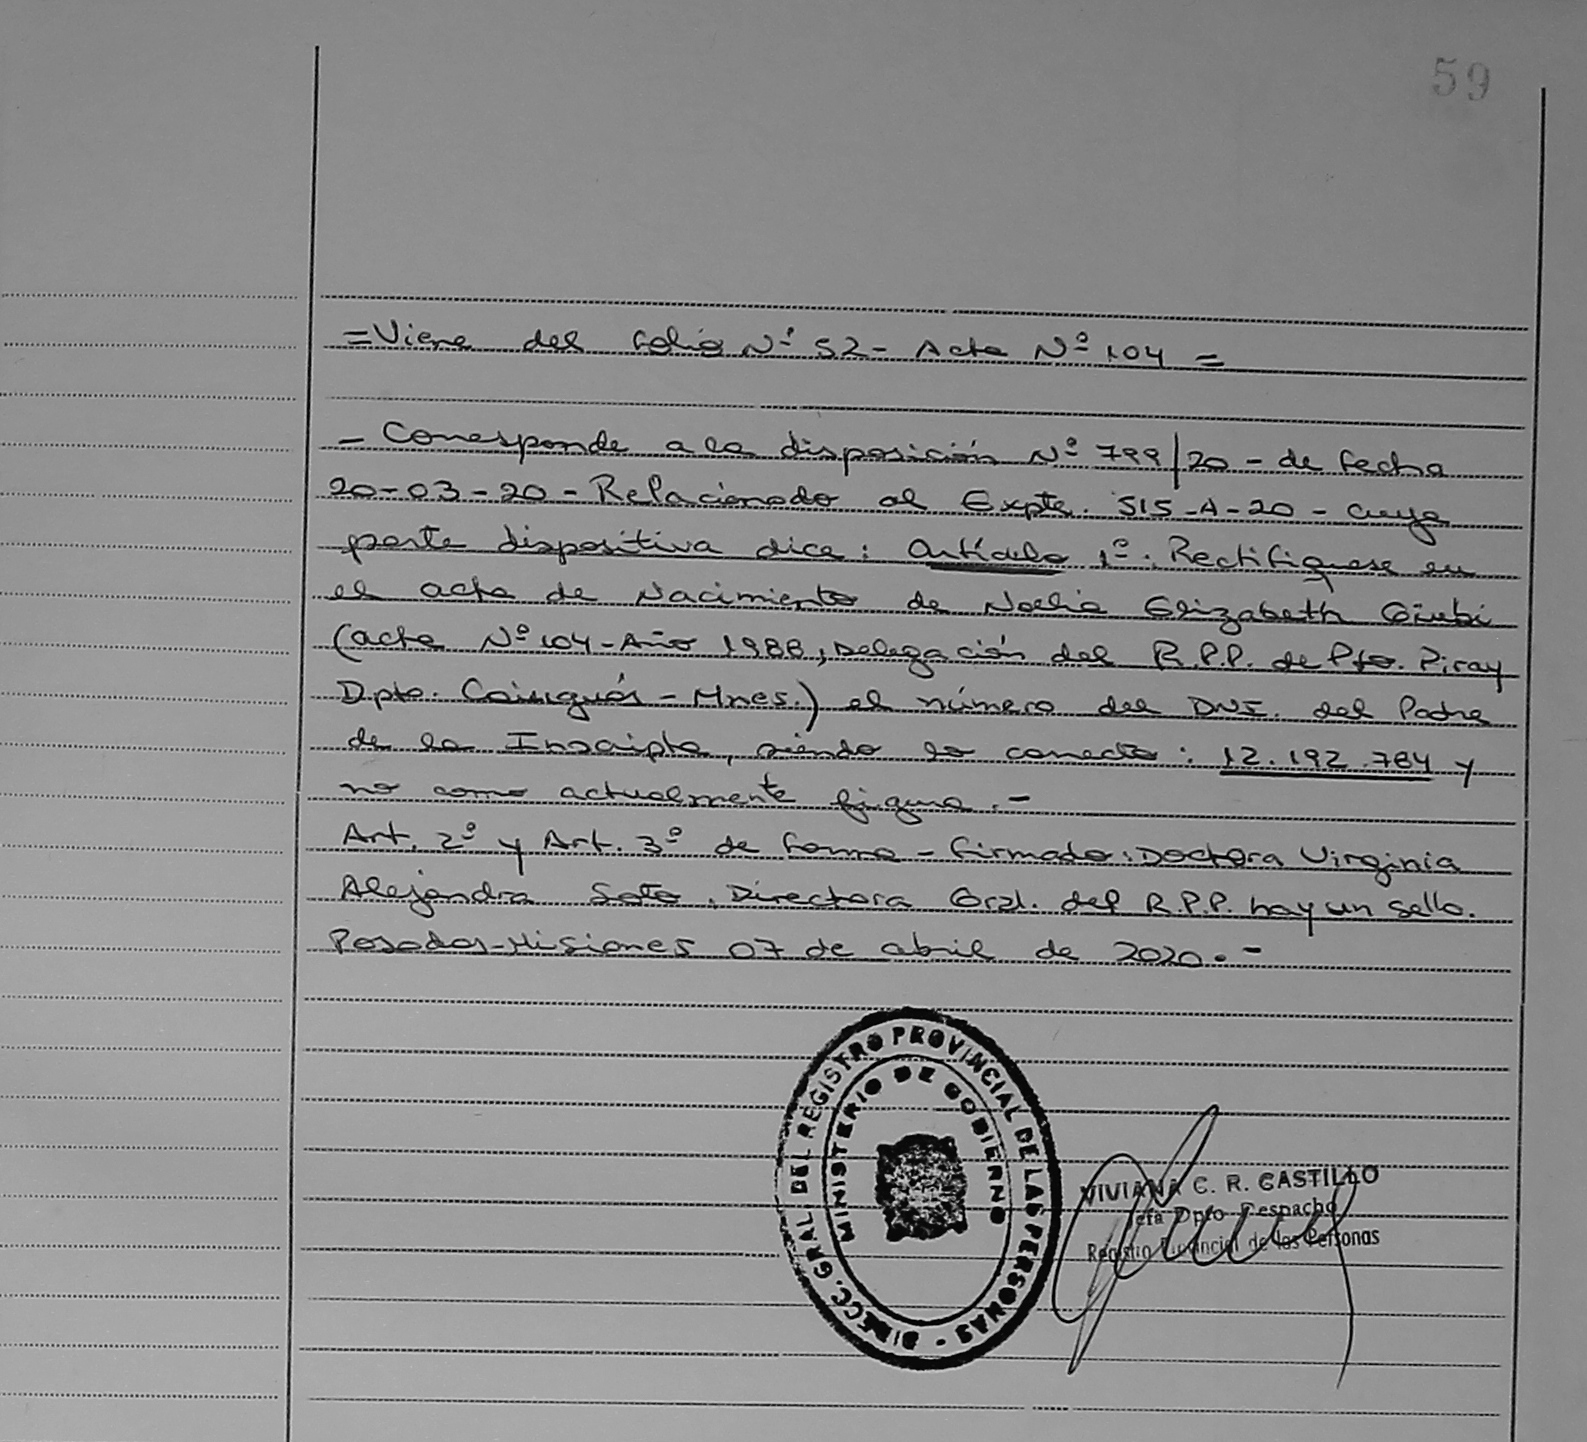 59
=Viene del folio Nº 52- Acta Nº 104 =
- Corresponde a la disposición Nº 799/20 - de fecha
20-03-20 - Relacionado al Expte. 515-A-20 - cuya
parte dispositiva dice: Artículo 1º. Rectifiquese en
el acta de Nacimiento de Noelia Elizabeth
(acta Nº 104-Año 1988, Delegación del R.P.P. de Pto. Piray
Dpto. - Mnes.) el número del DNI. del Padre
de la Inscripta, siendo lo correcto: 12.192.784 y
no como actualmente figura.-
Art. 2º y Art. 3º de forma - firmado: Doctora Virginia
Alejandra Soto. Directora Gral. del R.P.P. hay un sello.
Posadas-Misiones 07 de abril de 2020.-
DIRECC. GRAL DEL REGISTRO PROVINCIAL DE LAS PERSONAS -
MINISTERIO DE GOBIERNO
VIVIANA C. R. CASTILLO
Jefa Dpto Despacho
Registro Provincial de las Personas